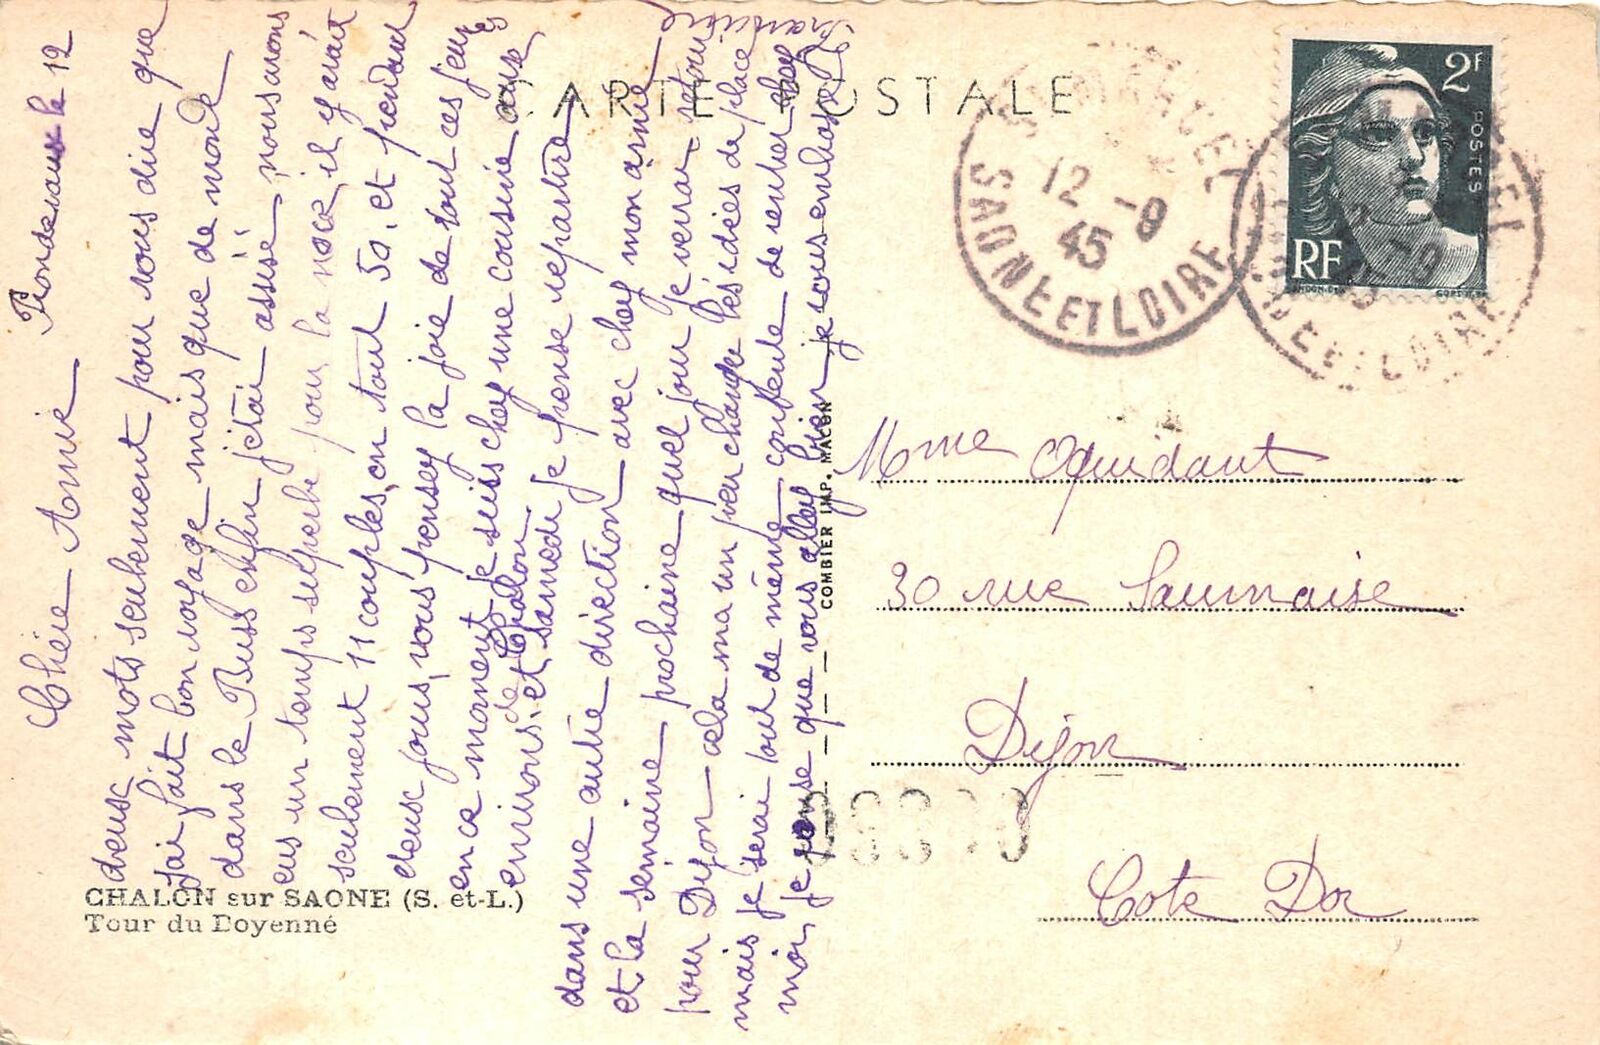 CARTE POSTALE
le 12
Chère Amie
deux mots seulement pour vous dire que
J'ai fait bon voyage mais que de monde
dans le Buss enfin j'étai assise, nous avons
eus un temps superbe pour la noce il y avait
seulement 11 couples, en tout 50, et pendant
deux jours, vous pensey la joie de tout ces jeunes
en ce moment je suis chey une cousine aux
environs de Chalon et samedi je pense repartire
dans une autre direction avec chey mon amie
et la semaine prochaine quel jour je verrai retour
pour Dijon cela ma un peu change les idées de place
mais je serai tout de même contente de rentrer chey
moi, je pense que vous alley bien, je vous embrasse
CHALON sur SAONE (S. et-L.)
Tour du Doyenné
COMBIER IMP. MACON
2F
POSTES
RF
12 -9
45
SAONE ET LOIRE
Mme
30 rue Saumaise
Dijon
Cote Dor